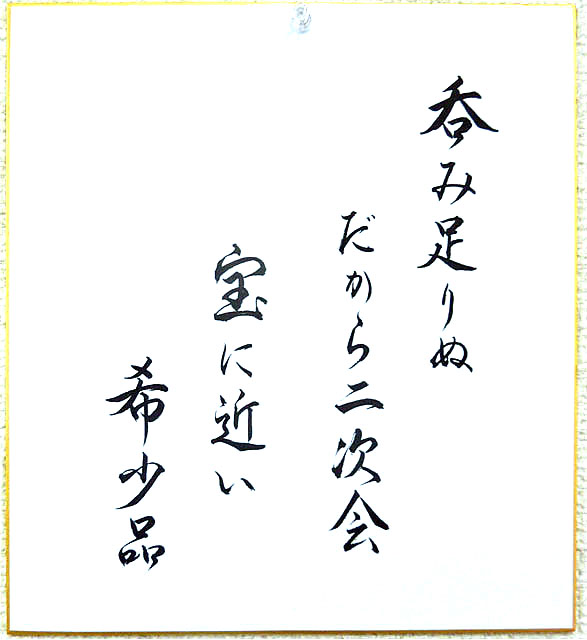 呑み足りぬ
だから二次会
宝に近い
希少品